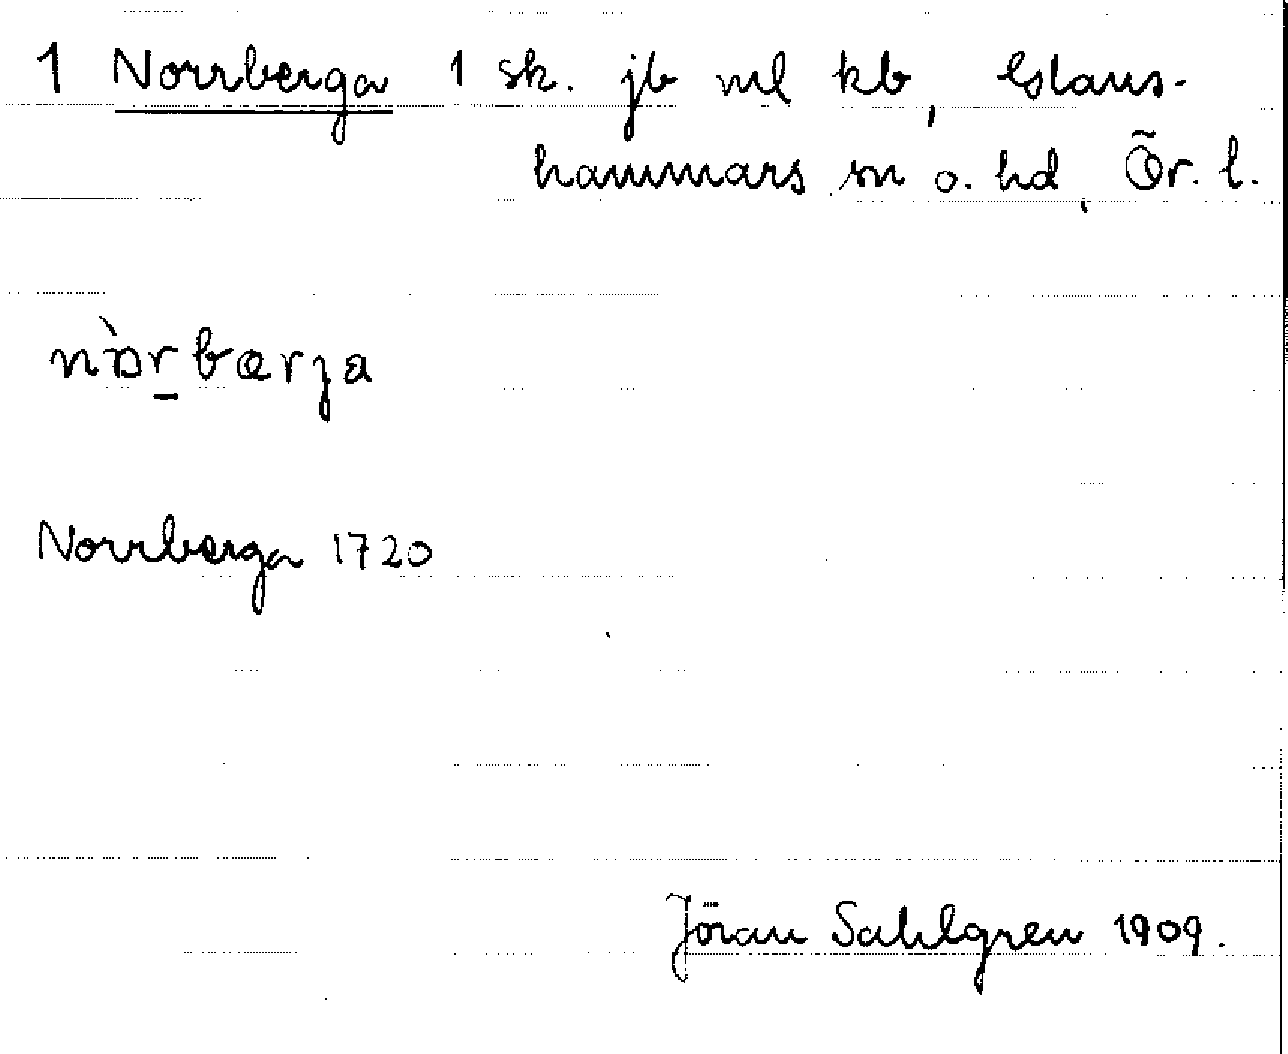 1 Norrberga 1 sk. jb ml kb, Glans-
hammars sn o. hd, Ör. l.
nòr̲bærja
Norrberga 1720
Jöran Sahlgren 1909.